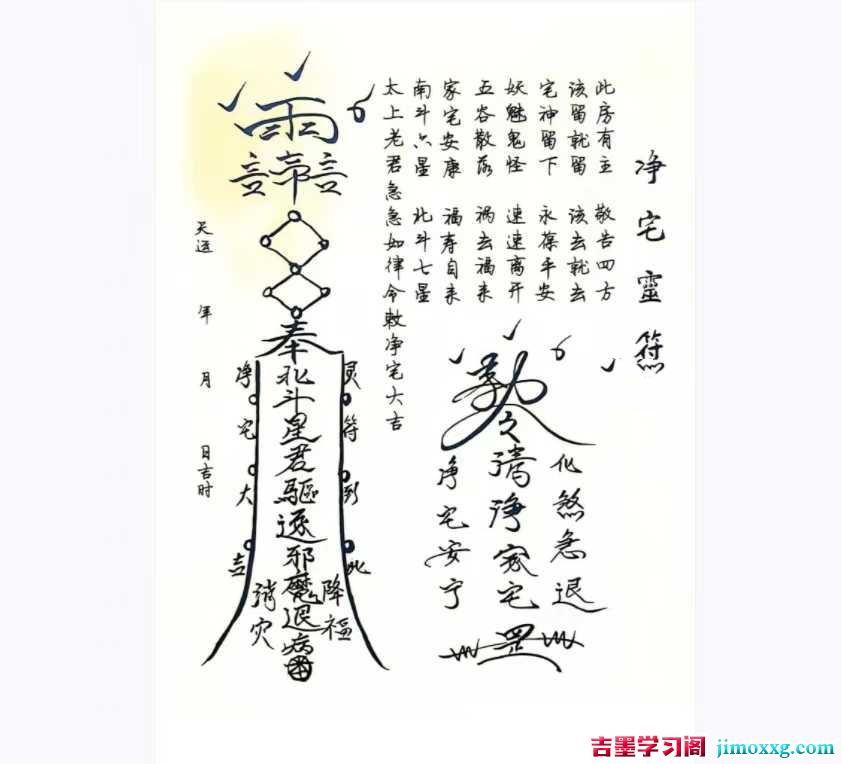 净宅灵符
此房有主 敬告四方
该留就留 该去就去
宅神留下 永葆平安
妖魅鬼怪 速速离开
五谷散落 祸去福来
家宅安康 福寿自来
南斗六星 北斗七星
太上老君急急如律令敕净宅大吉
雨
奉北斗星君驱逐邪魔退病
灵符到此
净宅大吉
降福
消灾
天运 年 月 日吉时
净家宅
化煞急退
净宅安宁
罡
吉墨学习阁 jimoxxg.com